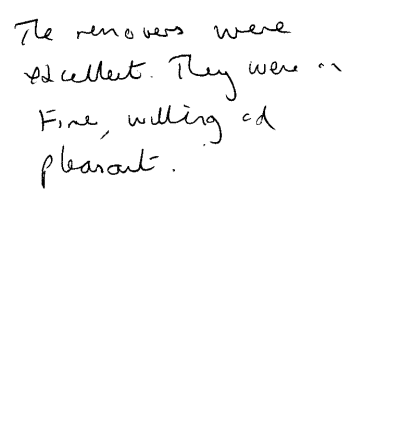 The removers were
excellent. They were on
time, willing and
pleasant.